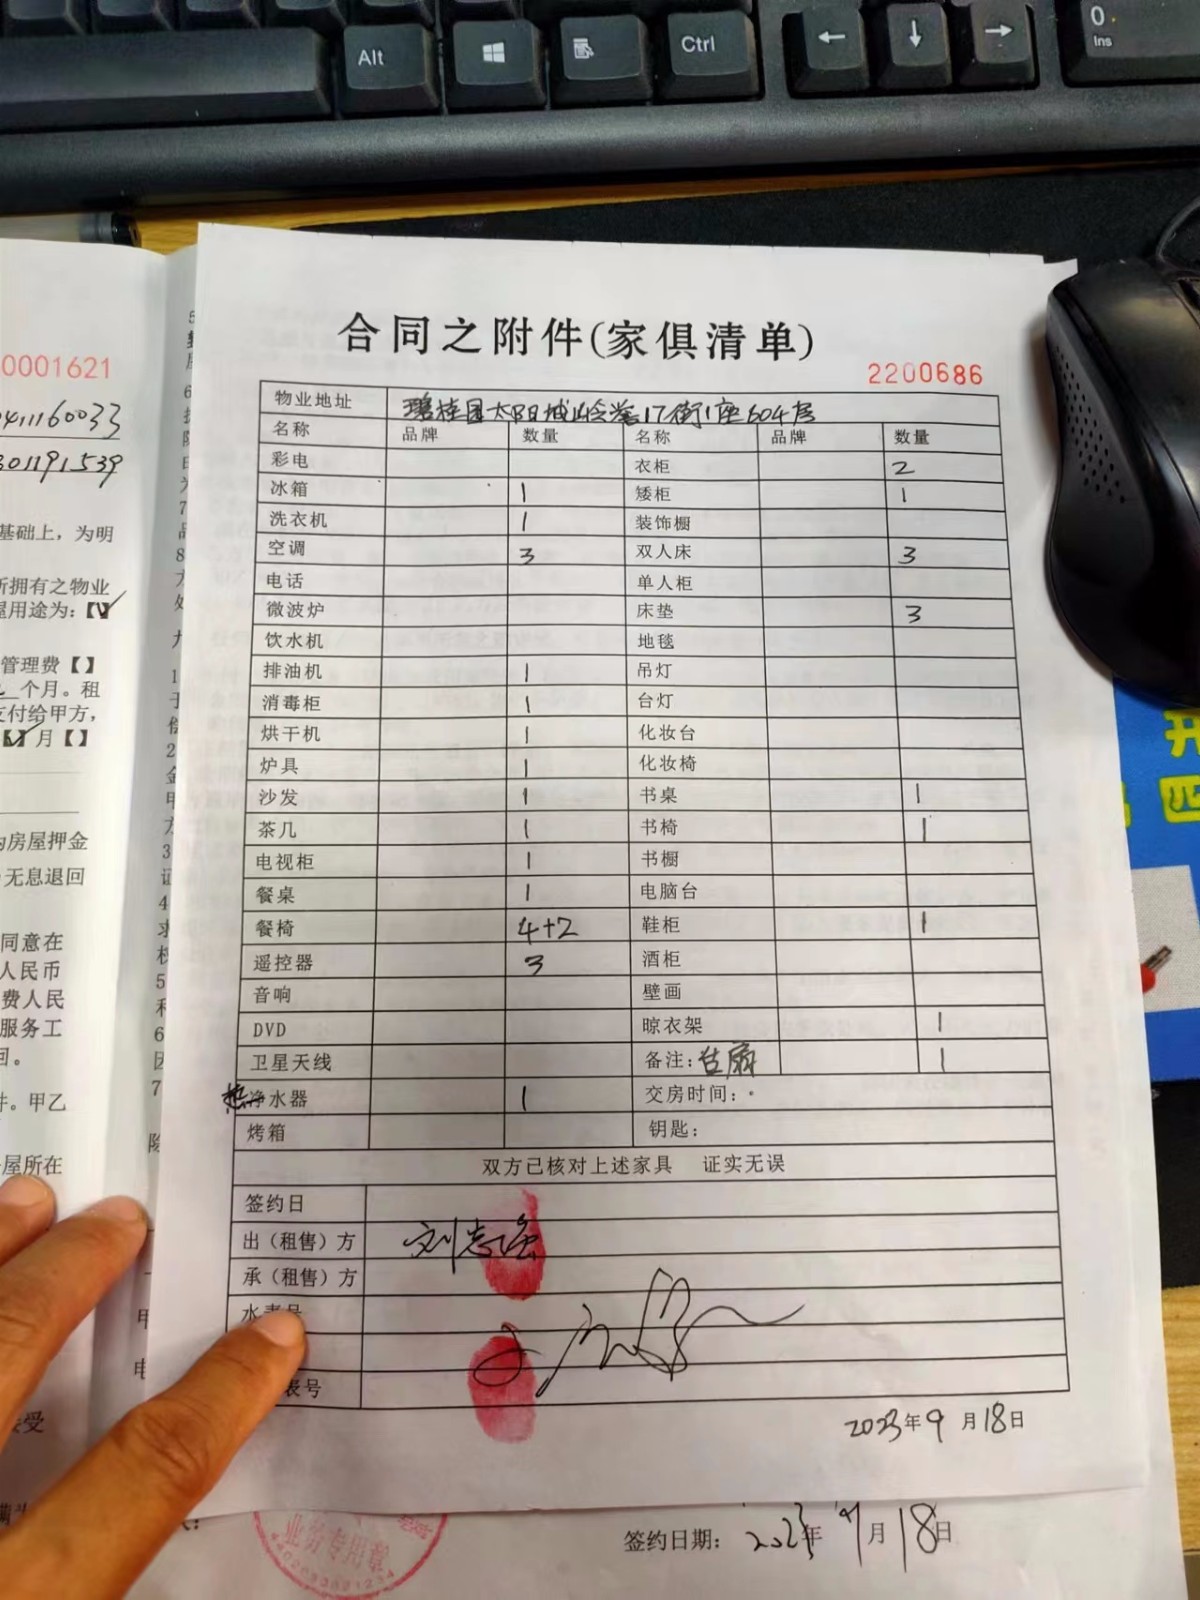 Alt
Ctrl
0
Ins
合同之附件(家俱清单)
2200686
物业地址 碧桂园太阳城山会誉17街1座604房
名称 品牌 数量 名称 品牌 数量
彩电 衣柜 2
冰箱 1 矮柜 1
洗衣机 1 装饰橱
空调 3 双人床 3
电话 单人柜
微波炉 床垫 3
饮水机 地毯
排油机 1 吊灯
消毒柜 1 台灯
烘干机 1 化妆台
炉具 1 化妆椅
沙发 1 书桌 1
茶几 1 书椅 1
电视柜 1 书橱
餐桌 1 电脑台
餐椅 4+2 鞋柜 1
遥控器 3 酒柜
音响 壁画
DVD 晾衣架 1
卫星天线 备注: 1
热水器 1 交房时间:
烤箱 钥匙:
双方已核对上述家具 证实无误
签约日
出（租售）方 刘志强
承（租售）方
水表号
表号
2023年9月18日
签约日期: 2023年9月18日
业务专用章
0001621
0411160033
301191539
基础上，为明
所拥有之物业
屋用途为:【√】
管理费【】
个月。租
支付给甲方，
【√】月【】
房屋押金
无息退回
同意在
人民币
费人民
服务工
回。
件。甲乙
屋所在
接受